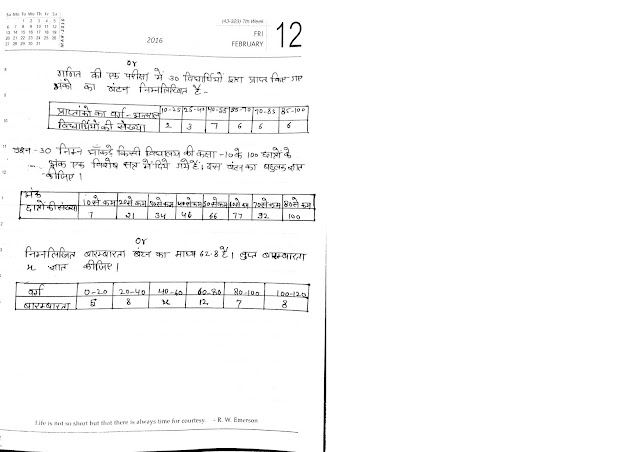 Su Mo Tu We Th Fr Sa
1 2 3 4 5
6 7 8 9 10 11 12
13 14 15 16 17 18 19
20 21 22 23 24 25 26
27 28 29 30 31
MAR-2016
2016
(43-323) 7th Week
FRI
FEBRUARY
12
or
गणित की एक परीक्षा में 30 विद्यार्थियों द्वारा प्राप्त किए गए
अंको का बंटन निम्नलिखित है -
प्राप्तांको का वर्ग - अन्तराल 10-25 25-40 40-55 55-70 70-85 85-100
विद्यार्थियों की संख्या 2 3 7 6 6 6
प्रश्न - 30 निम्न आँकडे किसी विद्यालय की कक्षा - 10 के 100 छात्रों के
अंक एक विशेष सत्र में दिये गये हैं। इस बंटन का बहुलक ज्ञात
कीजिए।
अंक 10 से कम 20 से कम 30 से कम 40 से कम 50 से कम 60 से कम 70 से कम 80 से कम
छात्रों की संख्या 7 21 34 46 66 77 92 100
or
निम्नलिखित बारम्बारता बंटन का माध्य 62.8 है। लुप्त बारम्बारता
x ज्ञात कीजिए।
वर्ग 0-20 20-40 40-60 60-80 80-100 100-120
बारम्बारता 5 8 x 12 7 8
Life is not so short but that there is always time for courtesy. - R. W. Emerson